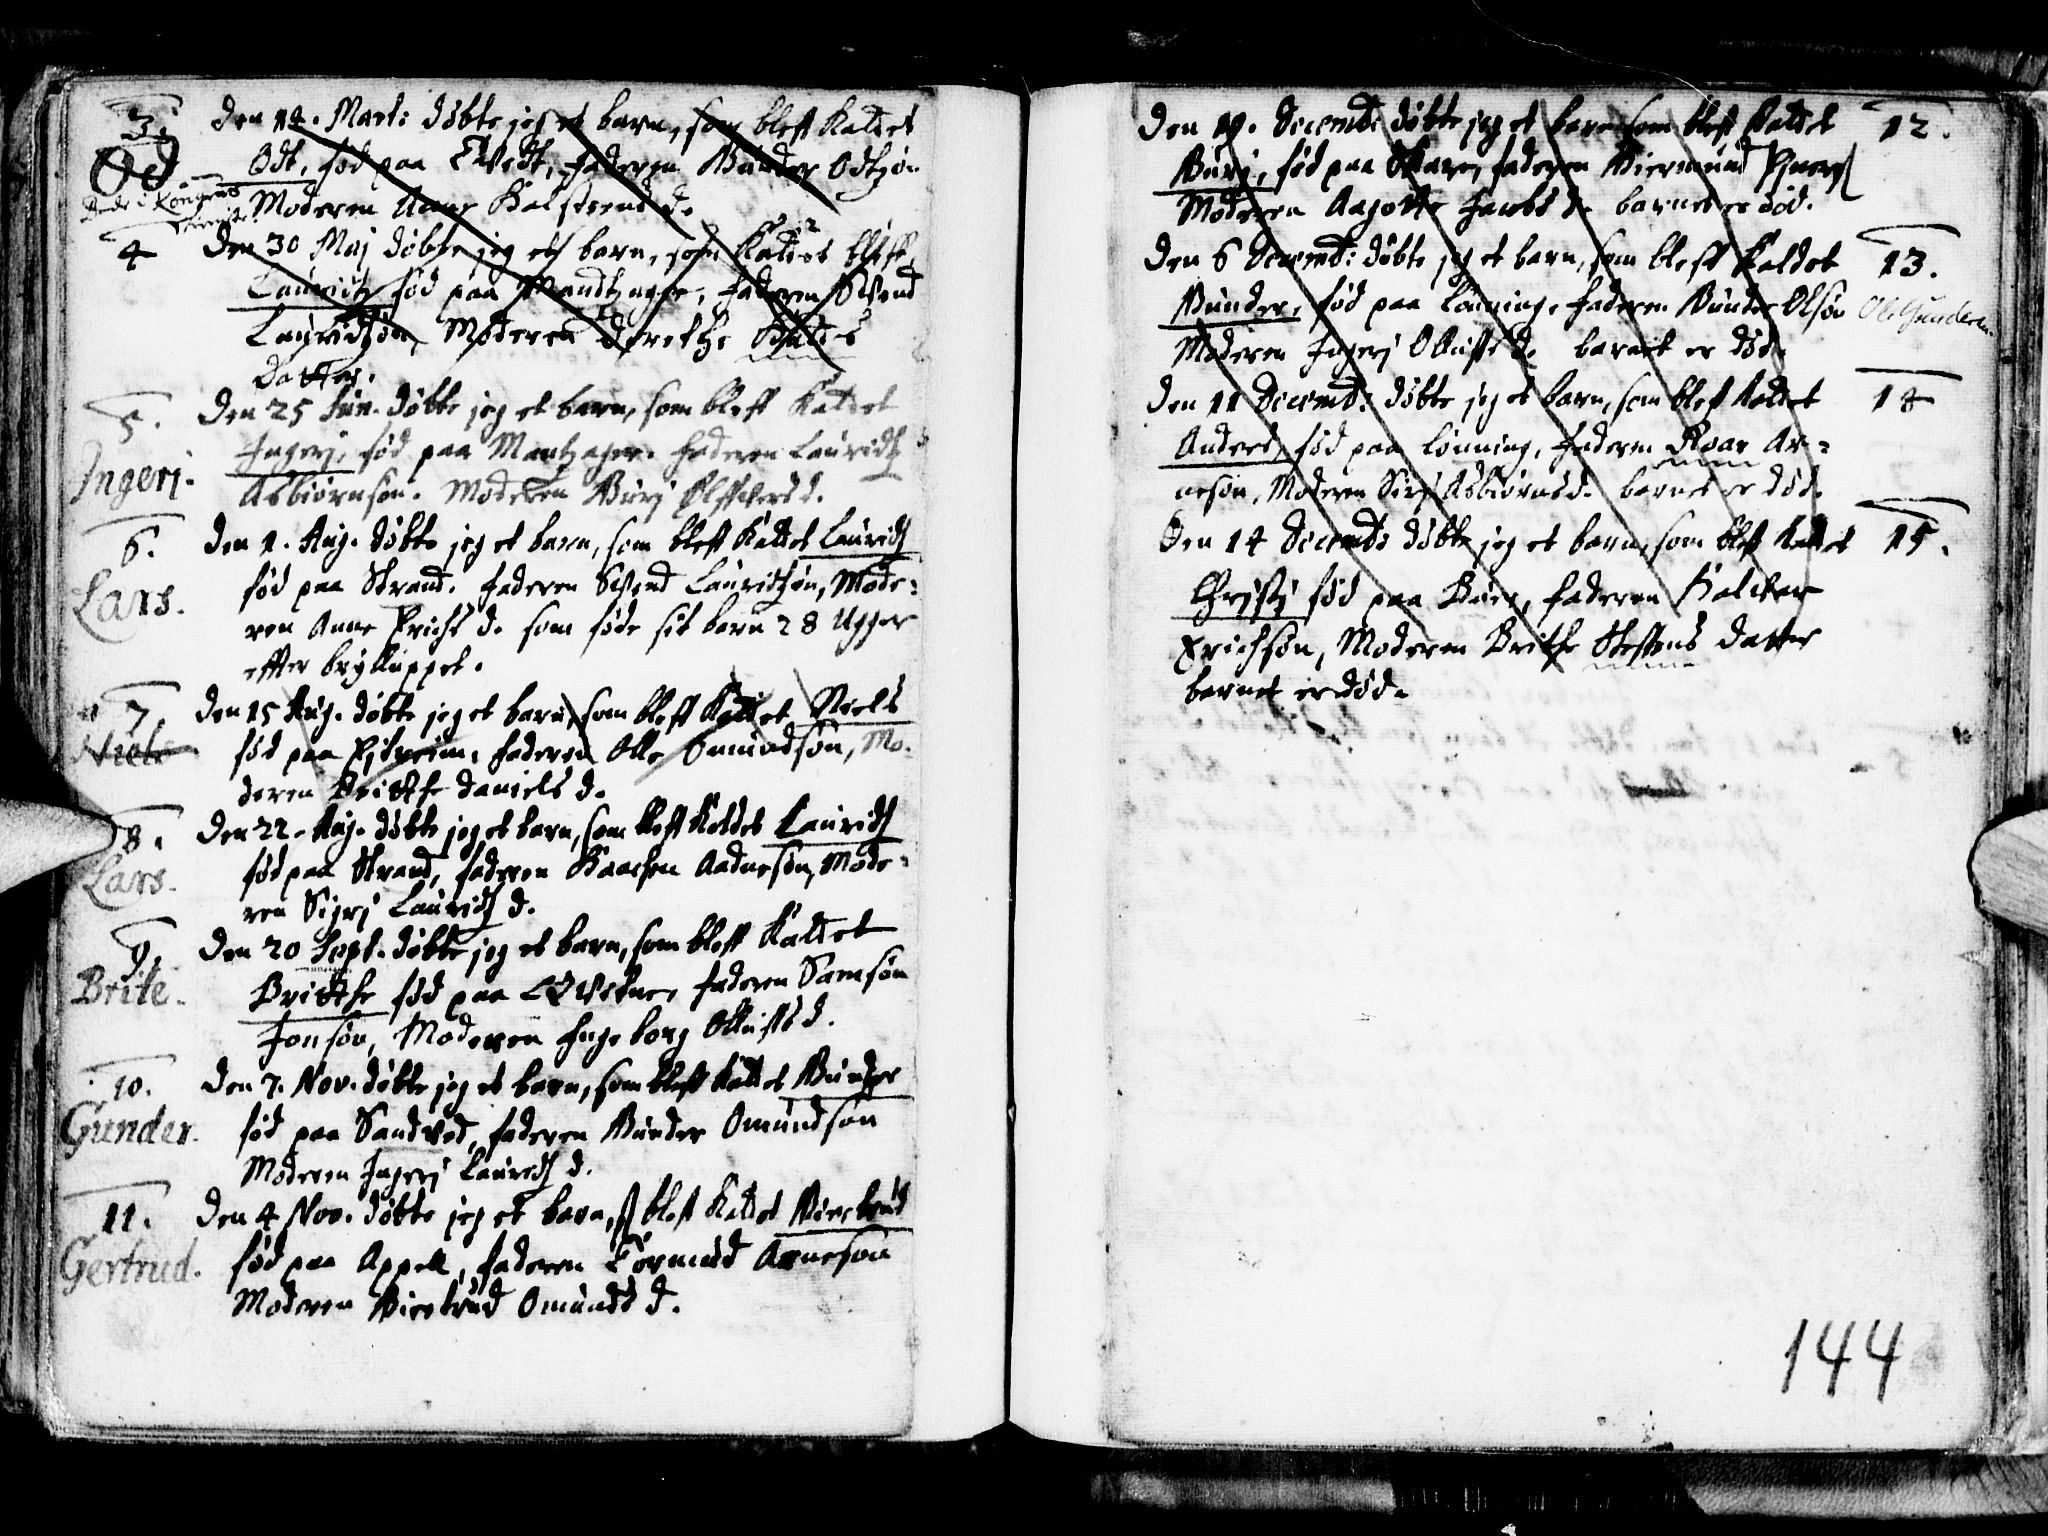 3.
Od
døde i Kongens
tieniste
Den 14. Mart: døbte jeg et barn, som bleff kaldet
Odt, fød paa Tvedt, faderen Gunder Odtzøn
Moderen Anne Halsteens d.
4
Den 30 Maj døbte jeg ett barn, som kaldet bleff
Lauridtz fød paa Mandtzager, faderen Svend
Lauridtzøn, Moderen Dorethe
Datter.
5.
Ingerj.
Den 25 Jun. døbte jeg et barn, som bleff kaldet
Ingerj, fød paa Mantzager. faderen Lauridtz
Asbiørnsøn. Moderen Gurj d.
6.
Lars.
Den 1. Aug. døbte jeg et barn, som bleff kaldet Lauridtz
fød paa Strand. faderen Svend Lauridtzøn, Mode=
ren Anne Erichs d. som føde sit barn 28 Uger
effter brylluppet.
7.
Niels
Den 15 Aug. døbte jeg et barn, som bleff kaldet Niels
fød paa faderen Olle Omundsøn, Mo.
deren Britthe Daniels d.
8.
Lars.
Den 22. Aug. døbte jeg et barn, som bleff kaldet Lauridtz
fød paa Strand, faderen Haachen Aadnesøn, Mode=
ren Sigrj Lauridtz d.
9.
Brite.
Den 20 Sept. døbte jeg et barn, som bleff kaldet
Britthe fød paa faderen Samsøn
Jonsøn, Moderen Ingeborg Olluffs d.
10.
Gunder.
Den 7. Nov. døbte jeg et barn, som bleff kaldet Gunder
fød paa Sandved, faderen Gunder Omundsøn
Moderen Ingerj Lauridtz d.
11.
Gertrud.
Den 4 Nov. døbte jeg et barn, s. bleff kaldet Giertrud
fød paa Appell, faderen Tormod Arnesøn
Moderen Giertrud Omunds d.
Den 19. Decemb: døbte jeg et barn som bleff kaldet 12.
Gurj, fød paa Skare, faderen Giermund
Moderen Aagotte Jacobs d. barnet er død.
Den 6 Decemb: døbte jeg et barn, som bleff kaldet 13.
Gunder, fød paa Lønning, faderen Gunder Olsøn Ole Gundersen
Moderen Ingerj Olluffs d. barnet er død.
Den 11 Decemb: døbte jeg et barn, som bleff kaldet 14
Anders, fød paa Lønning, faderen Roar Ar=
nesøn, Moderen Sirj Asbiørns d. barnet er død.
Den 14 Decemb: døbte jeg et barn, som bleff kaldet 15.
Christj fød paa Buer, faderen Halvor
Erichsøn, Moderen Brithe Steffens datter
barnet er død.
144